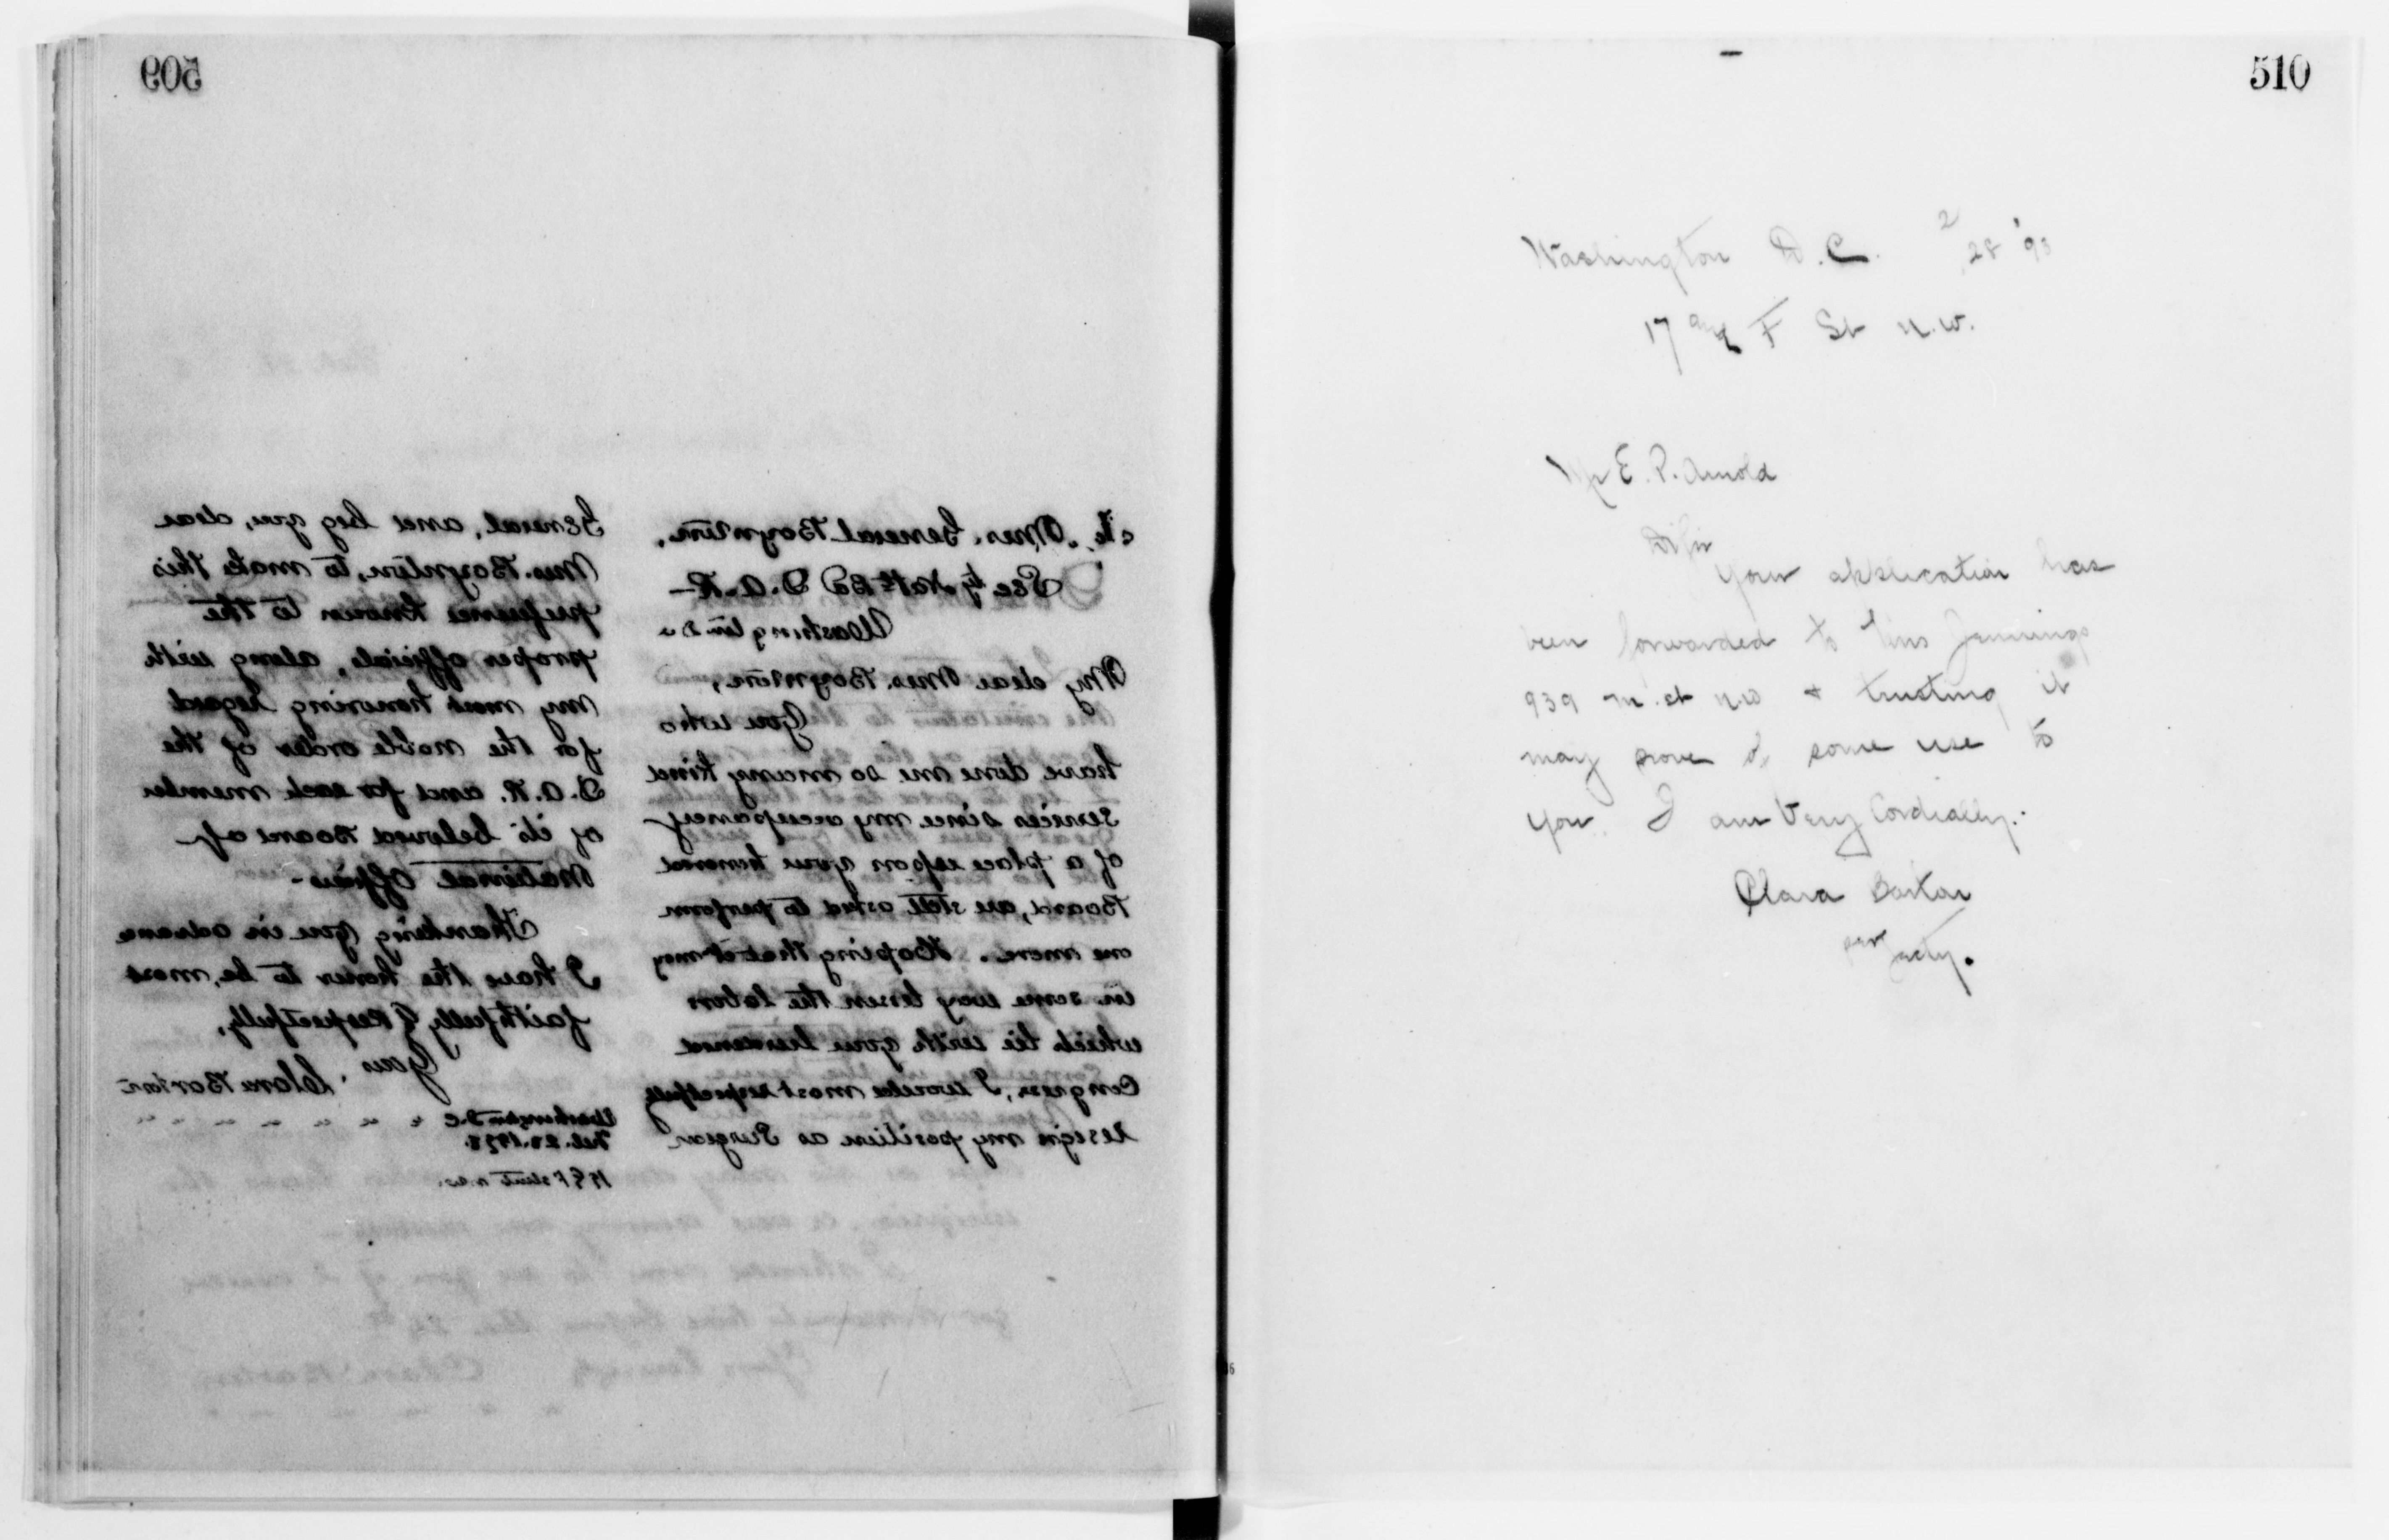 509
Mrs. General Boynton,
Sec'y Nat'l Bd D.A.R—
Washington D.C.
My dear Mrs. Boynton,
You who
have done me so many kind
services since my occupancy
of a place upon your honored
Board, are still asked to perform
one more. Hoping that it may
in some way lessen the labors
which lie with your burdened
Congress, I would most respectfully
resign my position as Surgeon
General, and beg you, dear
Mrs. Boynton, to make this
preference known to the
proper officials, along with
my most honoring regard
for the noble order of the
D.A.R. and for each member
of its beloved Board of
National Officers—
Thanking you in advance
I have the honor to be, most
faithfully & respectfully,
Yours, Clara Barton
Washington D.C.
Feb. 28. 1893.
17 & F street n.w.
510
Washington D.C. 2 28 '93
17 and F St N.W.
Mr E. P. Arnold
Your application has
been forwarded to Miss Jennings
939 M. st N.W & trusting it
may prove of some use to
you. I am Very Cordially.
Clara Barton
per